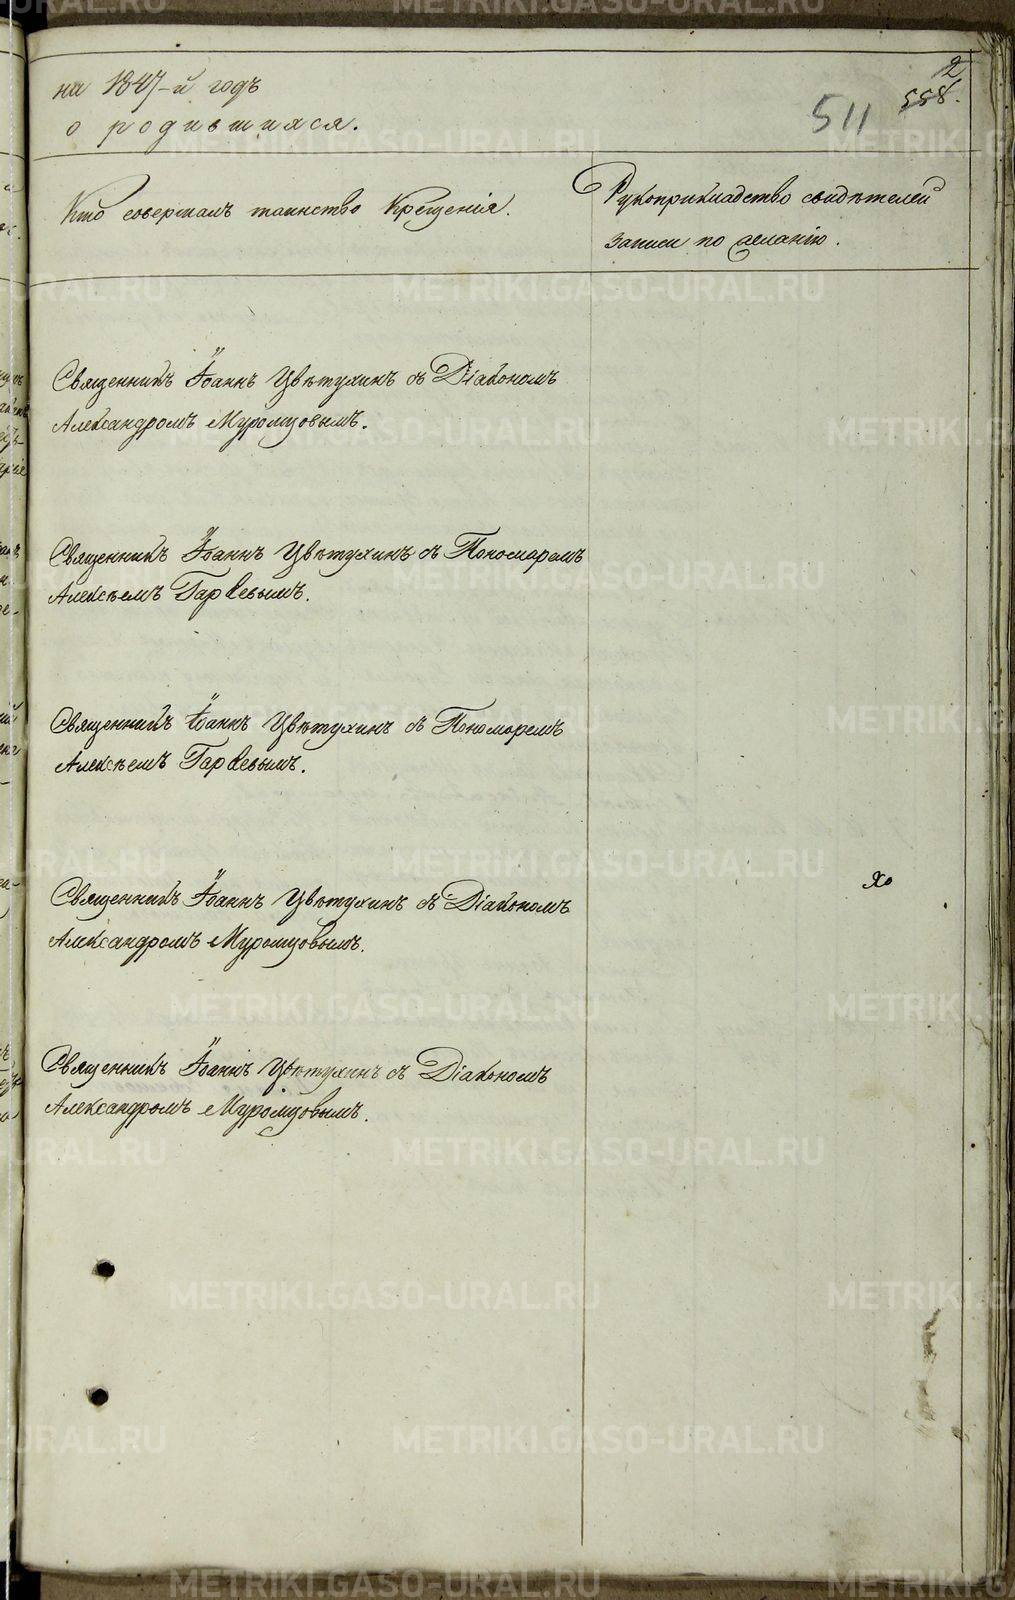 на 1847-й годъ
о родившихся.
2
558.
511
Кто совершалъ таинство Крещенія.
Рукоприкладство свидѣтелей
записи по желанію.
Священникъ Іоаннъ Цвѣтухинъ съ Діакономъ
Александромъ Муромцовымъ.
Священникъ Іоаннъ Цвѣтухинъ съ Пономаремъ
Алексѣемъ Гаряевымъ.
Священникъ Іоаннъ Цвѣтухинъ съ Пономаремъ
Алексѣемъ Гаряевымъ.
Священникъ Іоаннъ Цвѣтухинъ съ Діакономъ
Александромъ Муромцовымъ.
Священникъ Іоаннъ Цвѣтухинъ съ Діакономъ
Александромъ Муромцовымъ.
METRIKI.GASO-URAL.RU